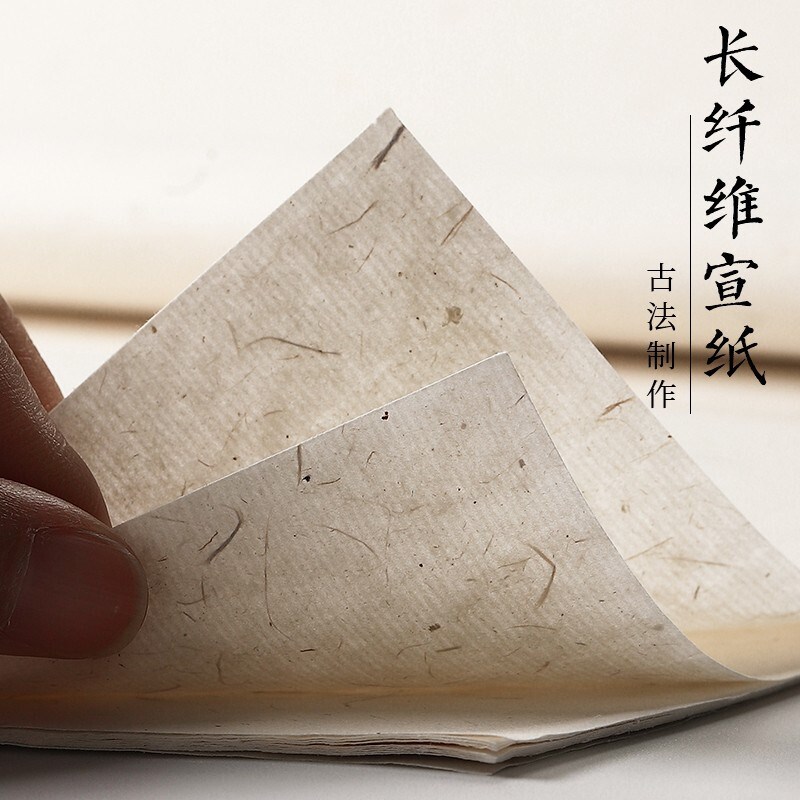 长纤维宣纸
古法制作